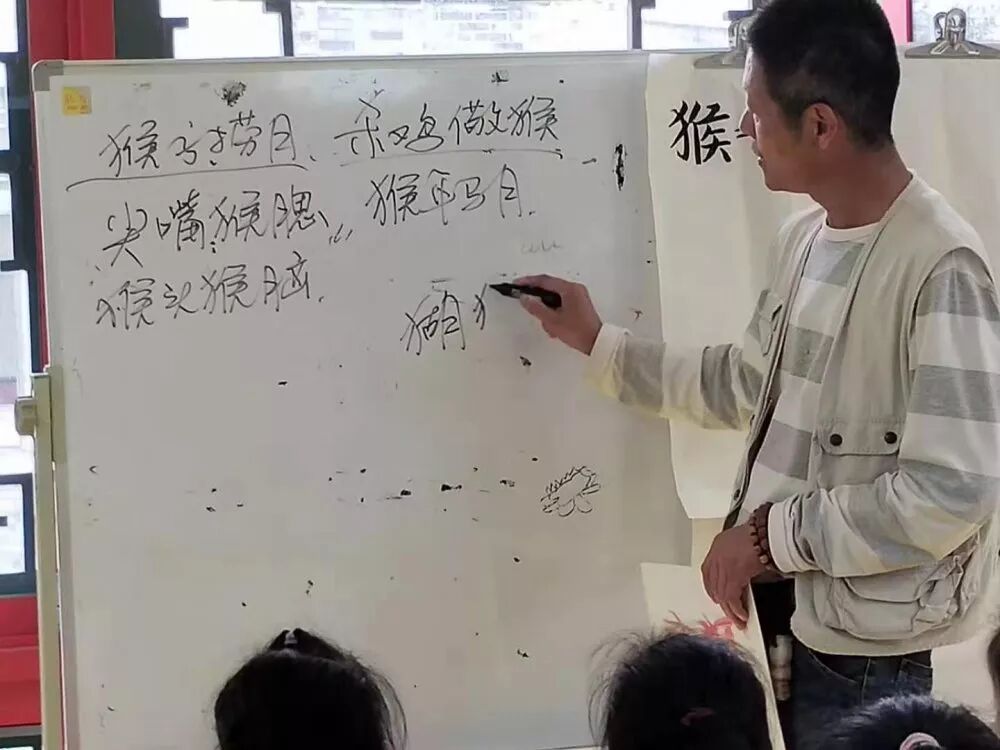 猴子捞月、杀鸡儆猴
尖嘴猴腮,, 猴年马月.
猴头猴脑.
猢
猴